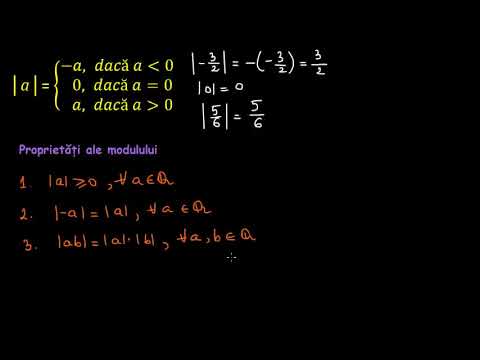 |a| = { −a, dacă a < 0
0, dacă a = 0
a, dacă a > 0
|−3/2| = −(−3/2) = 3/2
|0| = 0
|5/6| = 5/6
Proprietăți ale modulului
1. |a| ⩾ 0, ∀ a ∈ ℚ
2. |−a| = |a|, ∀ a ∈ ℚ
3. |ab| = |a|·|b|, ∀ a, b ∈ ℚ